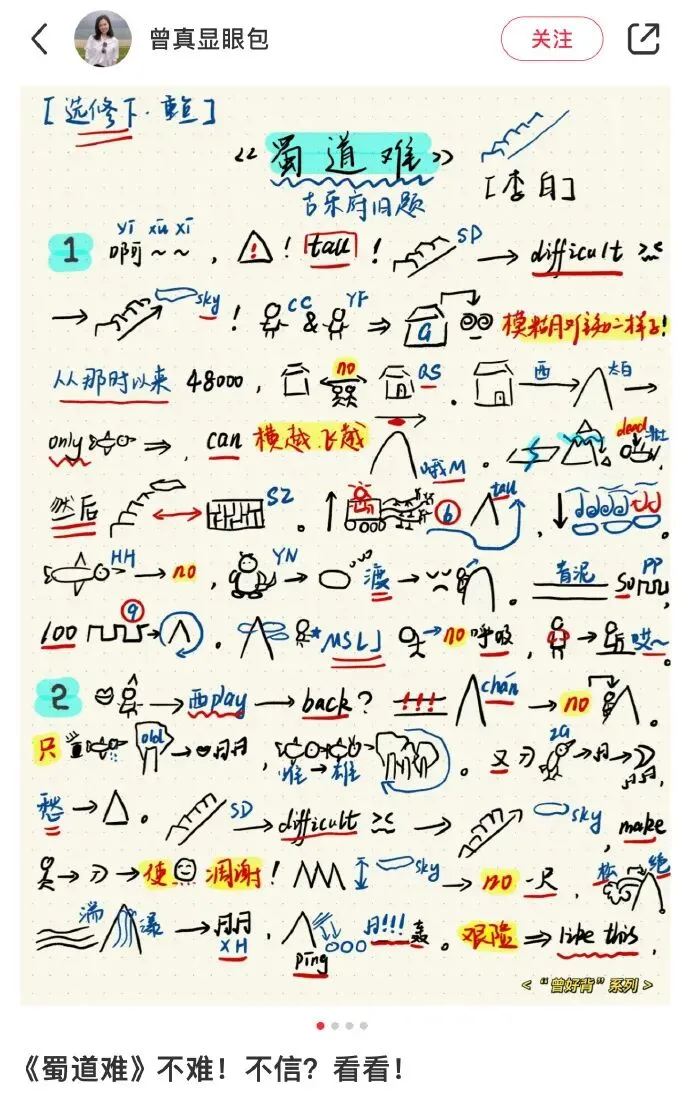 曾真显眼包
关注
[选修下·重点]
《蜀道难》
[李白]
古乐府旧题
1 yī xū xī
啊~~,!!tall!SD→difficult
→sky!CC&YF⇒G模糊难认的样子!
从那时以来48000,no QS。西→太白→
only⇒,can横越飞越 哦M。dead壮,
然后 SZ。6 tall,
HH→no,YN→渡→。青泥 so PP,
100 9→。MSL」→no呼吸,→哎~
2 →西play→back?!!!chán→no。
只 old→月月,雌→雄。又 zg→月→,
愁→。SD→difficult→sky,make
→→使 凋谢!sky→no一尺,松 绝
湍 瀑→月月XH,pīng 月!!!轰。艰险⇒like this,
<“曾好背”系列>
《蜀道难》不难！不信？看看！